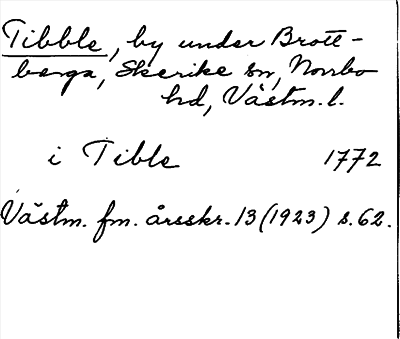 Tibble, by under Brott-
berga, Skerike sn, Norrbo
hd, Västm. l.
i Tible 1772
Västm. fm. årsskr. 13 (1923) s. 62.